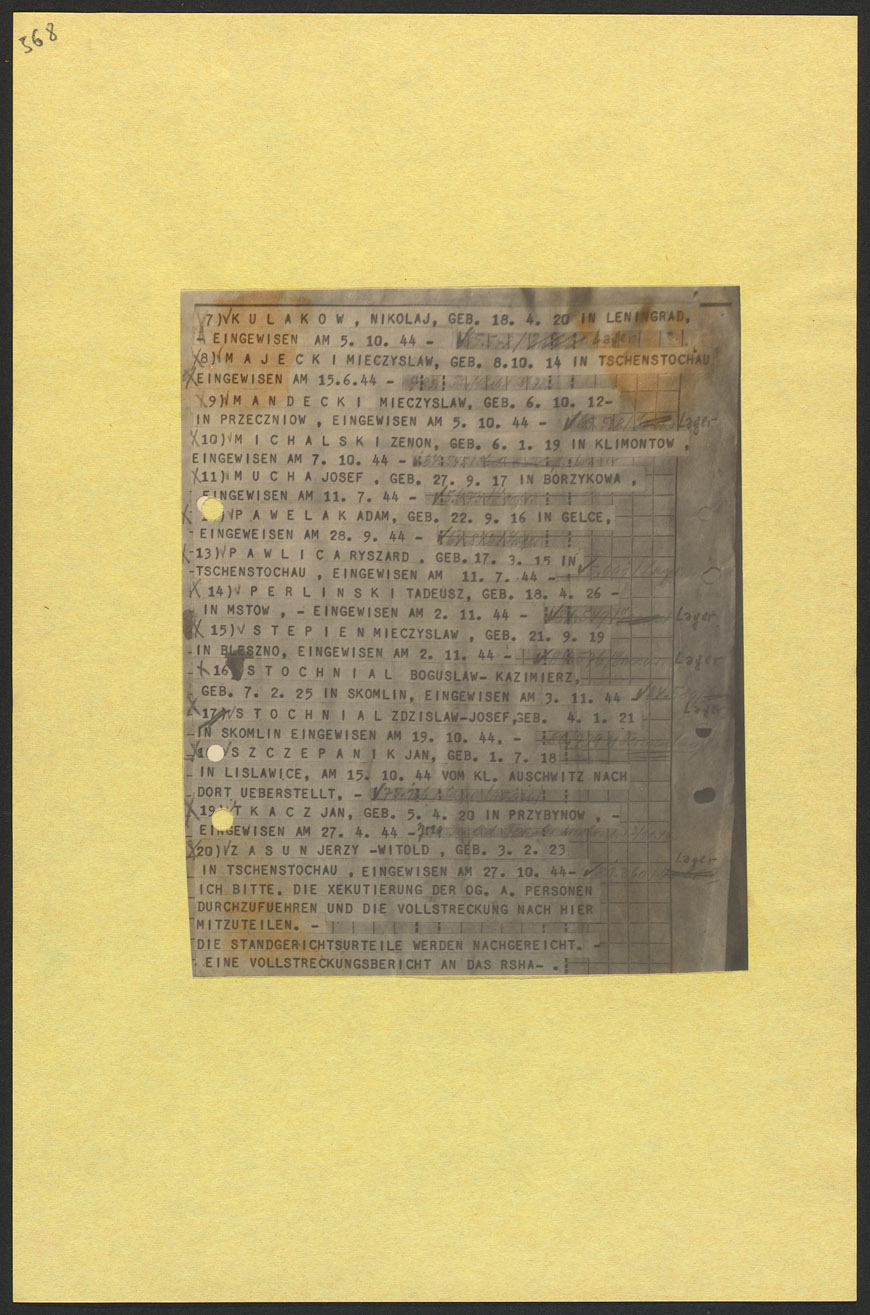 568
7) K U L A K O W , NIKOLAJ, GEB. 18. 4. 20 IN LENINGRAD,
- EINGEWISEN AM 5. 10. 44 -
8) M A J E C K I MIECZYSLAW, GEB. 8.10. 14 IN TSCHENSTOCHAU
EINGEWISEN AM 15.6.44 -
9) M A N D E C K I MIECZYSLAW, GEB. 6. 10. 12-
IN PRZECZNIOW , EINGEWISEN AM 5. 10. 44 - Lager
10) M I C H A L S K I ZENON, GEB. 6. 1. 19 IN KLIMONTOW ,
EINGEWISEN AM 7. 10. 44 -
11) M U C H A JOSEF , GEB. 27. 9. 17 IN BORZYKOWA ,
EINGEWISEN AM 11. 7. 44 -
P A W E L A K ADAM, GEB. 22. 9. 16 IN GELCE,
- EINGEWEISEN AM 28. 9. 44 -
-13) P A W L I C A RYSZARD , GEB. 17. 3. 15 IN
-TSCHENSTOCHAU , EINGEWISEN AM 11. 7. 44 -
14) P E R L I N S K I TADEUSZ, GEB. 18. 4. 26 -
IN MSTOW , - EINGEWISEN AM 2. 11. 44 - Lager
15) S T E P I E N MIECZYSLAW , GEB. 21. 9. 19
-IN BLESZNO, EINGEWISEN AM 2. 11. 44 - Lager
16 S T O C H N I A L BOGUSLAW- KAZIMIERZ,
GEB. 7. 2. 25 IN SKOMLIN, EINGEWISEN AM 3. 11. 44
17) S T O C H N I A L ZDZISLAW-JOSEF,GEB. 4. 1. 21 Lager
IN SKOMLIN EINGEWISEN AM 19. 10. 44. -
S Z C Z E P A N I K JAN, GEB. 1. 7. 18
IN LISLAWICE, AM 15. 10. 44 VOM KL. AUSCHWITZ NACH
DORT UEBERSTELLT, -
19) T K A C Z JAN, GEB. 5. 4. 20 IN PRZYBYNOW , -
EINGEWISEN AM 27. 4. 44 -
20) Z A S U N JERZY -WITOLD , GEB. 3. 2. 23 Lager
IN TSCHENSTOCHAU , EINGEWISEN AM 27. 10. 44-
ICH BITTE. DIE XEKUTIERUNG DER OG. A. PERSONEN
DURCHZUFUEHREN UND DIE VOLLSTRECKUNG NACH HIER
MITZUTEILEN. -
-DIE STANDGERICHTSURTEILE WERDEN NACHGEREICHT. -
- EINE VOLLSTRECKUNGSBERICHT AN DAS RSHA- .